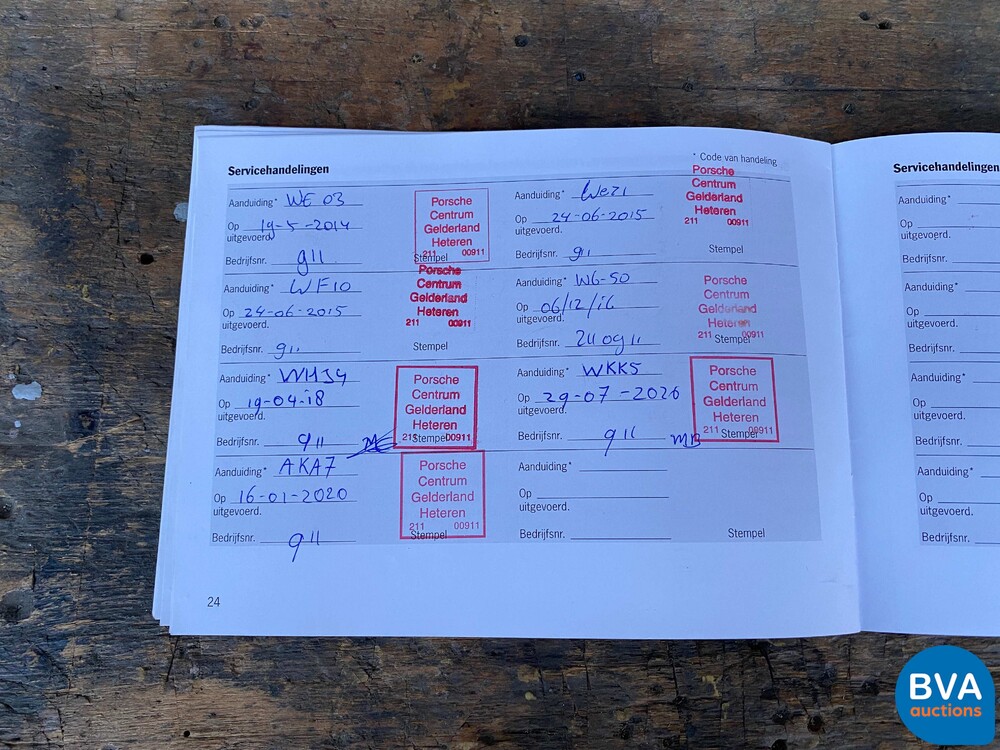 Servicehandelingen
* Code van handeling
Aanduiding* WE 03
Op 19-5-2014
uitgevoerd.
Bedrijfsnr. 911
Porsche
Centrum
Gelderland
Heteren
211 00911
Stempel
Aanduiding* WeZ1
Op 24-06-2015
uitgevoerd.
Bedrijfsnr. 911
Porsche
Centrum
Gelderland
Heteren
211 00911
Stempel
Aanduiding* WF10
Op 24-06-2015
uitgevoerd.
Bedrijfsnr. 911
Porsche
Centrum
Gelderland
Heteren
211 00911
Stempel
Aanduiding* WG-50
Op 06/12/16
uitgevoerd.
Bedrijfsnr. 211 0911
Porsche
Centrum
Gelderland
Heteren
211 00911
Stempel
Aanduiding* WHJ4
Op 19-04-18
uitgevoerd.
Bedrijfsnr. 911
Porsche
Centrum
Gelderland
Heteren
211 00911
Stempel
Aanduiding* WKK5
Op 29-07-2020
uitgevoerd.
Bedrijfsnr. 911 MB
Porsche
Centrum
Gelderland
Heteren
211 00911
Stempel
Aanduiding* AKA7
Op 16-01-2020
uitgevoerd.
Bedrijfsnr. 911
Porsche
Centrum
Gelderland
Heteren
211 00911
Stempel
Aanduiding*
Op
uitgevoerd.
Bedrijfsnr.
Stempel
24
Servicehandelingen
Aanduiding*
Op
uitgevoerd.
Bedrijfsnr.
Aanduiding*
Op
uitgevoerd.
Bedrijfsnr.
Aanduiding*
Op
uitgevoerd.
Bedrijfsnr.
Aanduiding*
Op
uitgevoerd.
Bedrijfsnr.
BVA
auctions